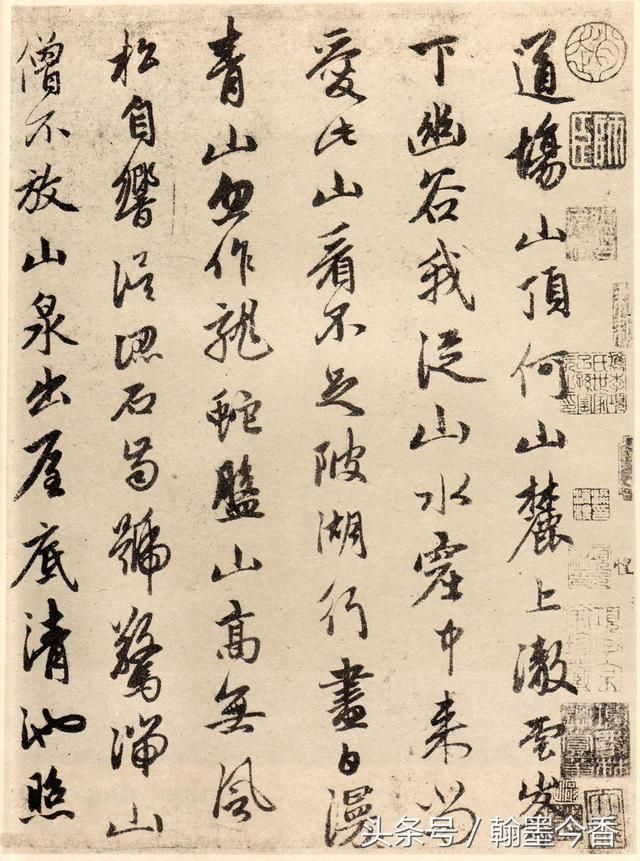 道塲山頂何山麓上澈雲峯
下幽谷我從山水窟中来尚
愛此山看不足陂湖行盡白漫
青山忽作龍蛇盤山高無風
松自響誤認石齒號驚湍山
僧不放山泉出屋底清池照
头条号 / 翰墨今香